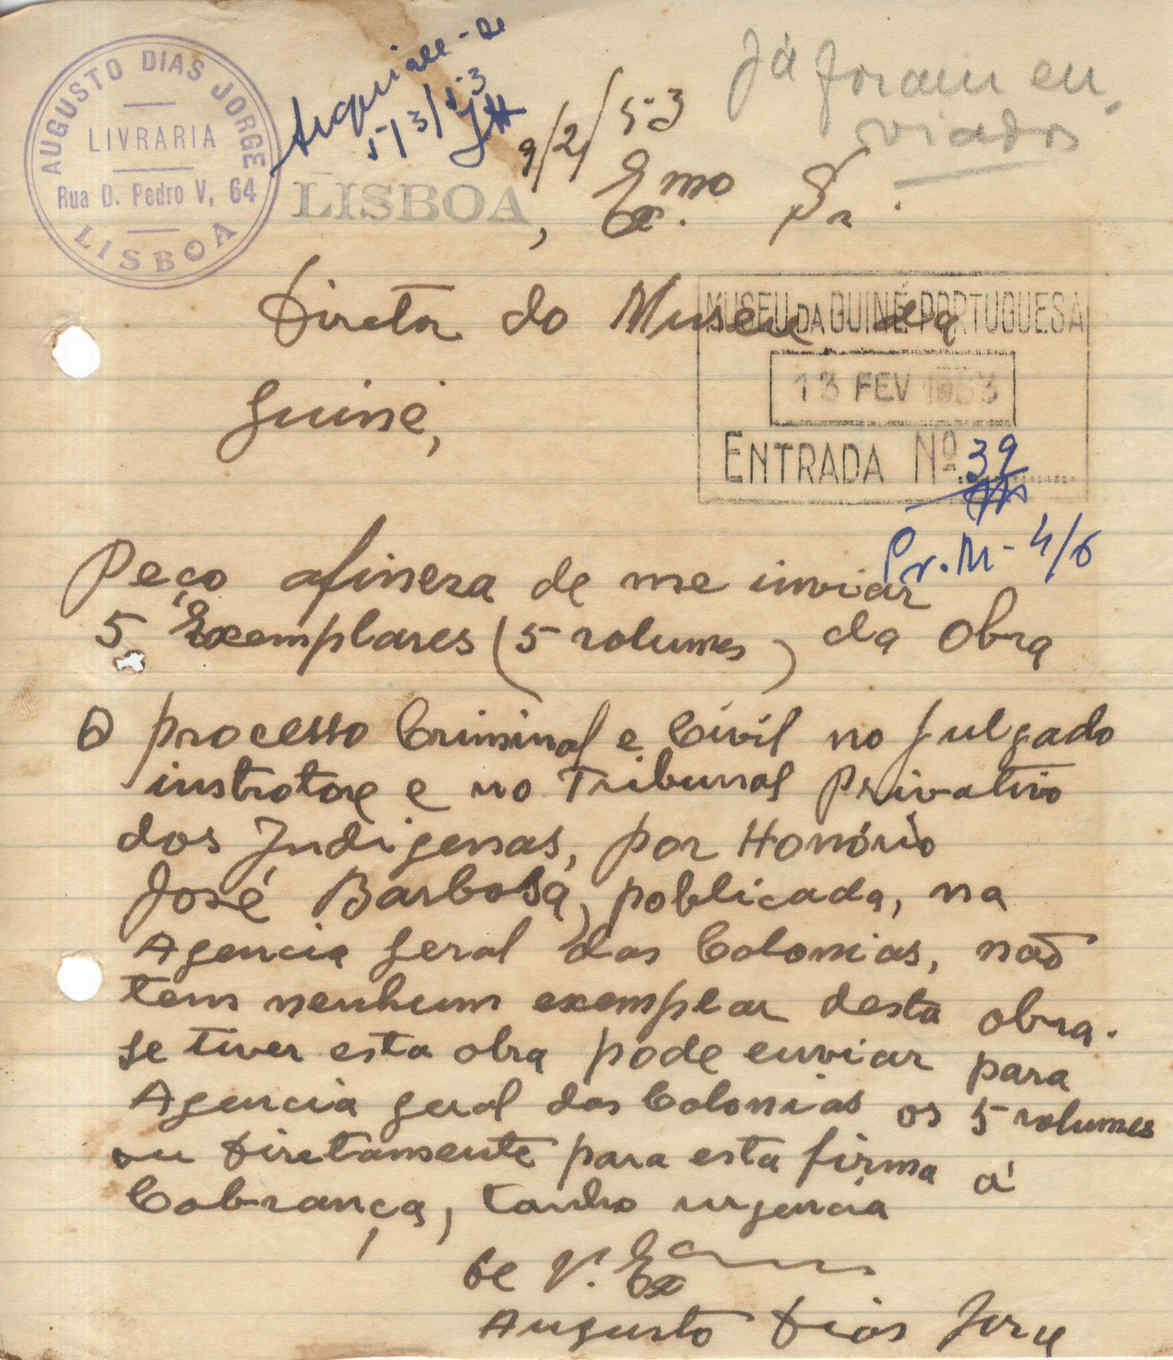 AUGUSTO DIAS JORGE
LIVRARIA
Rua D. Pedro V, 64
LISBOA
Arquive-se
5/3/53
Já foram en-
viados
LISBOA, 9/2/53
Exmo Sr.
Diretor do Museu da
Guiné,
MUSEU DA GUINÉ PORTUGUESA
13 FEV 1953
ENTRADA Nº 39
Pr. M-4/6
Peço afineza de me inviar
5 Exemplares (5 volumes) da Obra
O processo Criminal e Civil no julgado
instrotore e no Tribunal Privativo
dos Indigenas, por Honório
José Barbosa, poblicada, na
Agencia geral das Colonias, não
tem nenhum exemplar desta obra.
se tiver esta obra pode enviar para
Agencia geral das Colonias os 5 volumes
ou Diretamente para esta firma á
Cobrança, tanho urgencia
De V. Ex
Augusto Dias Jorge